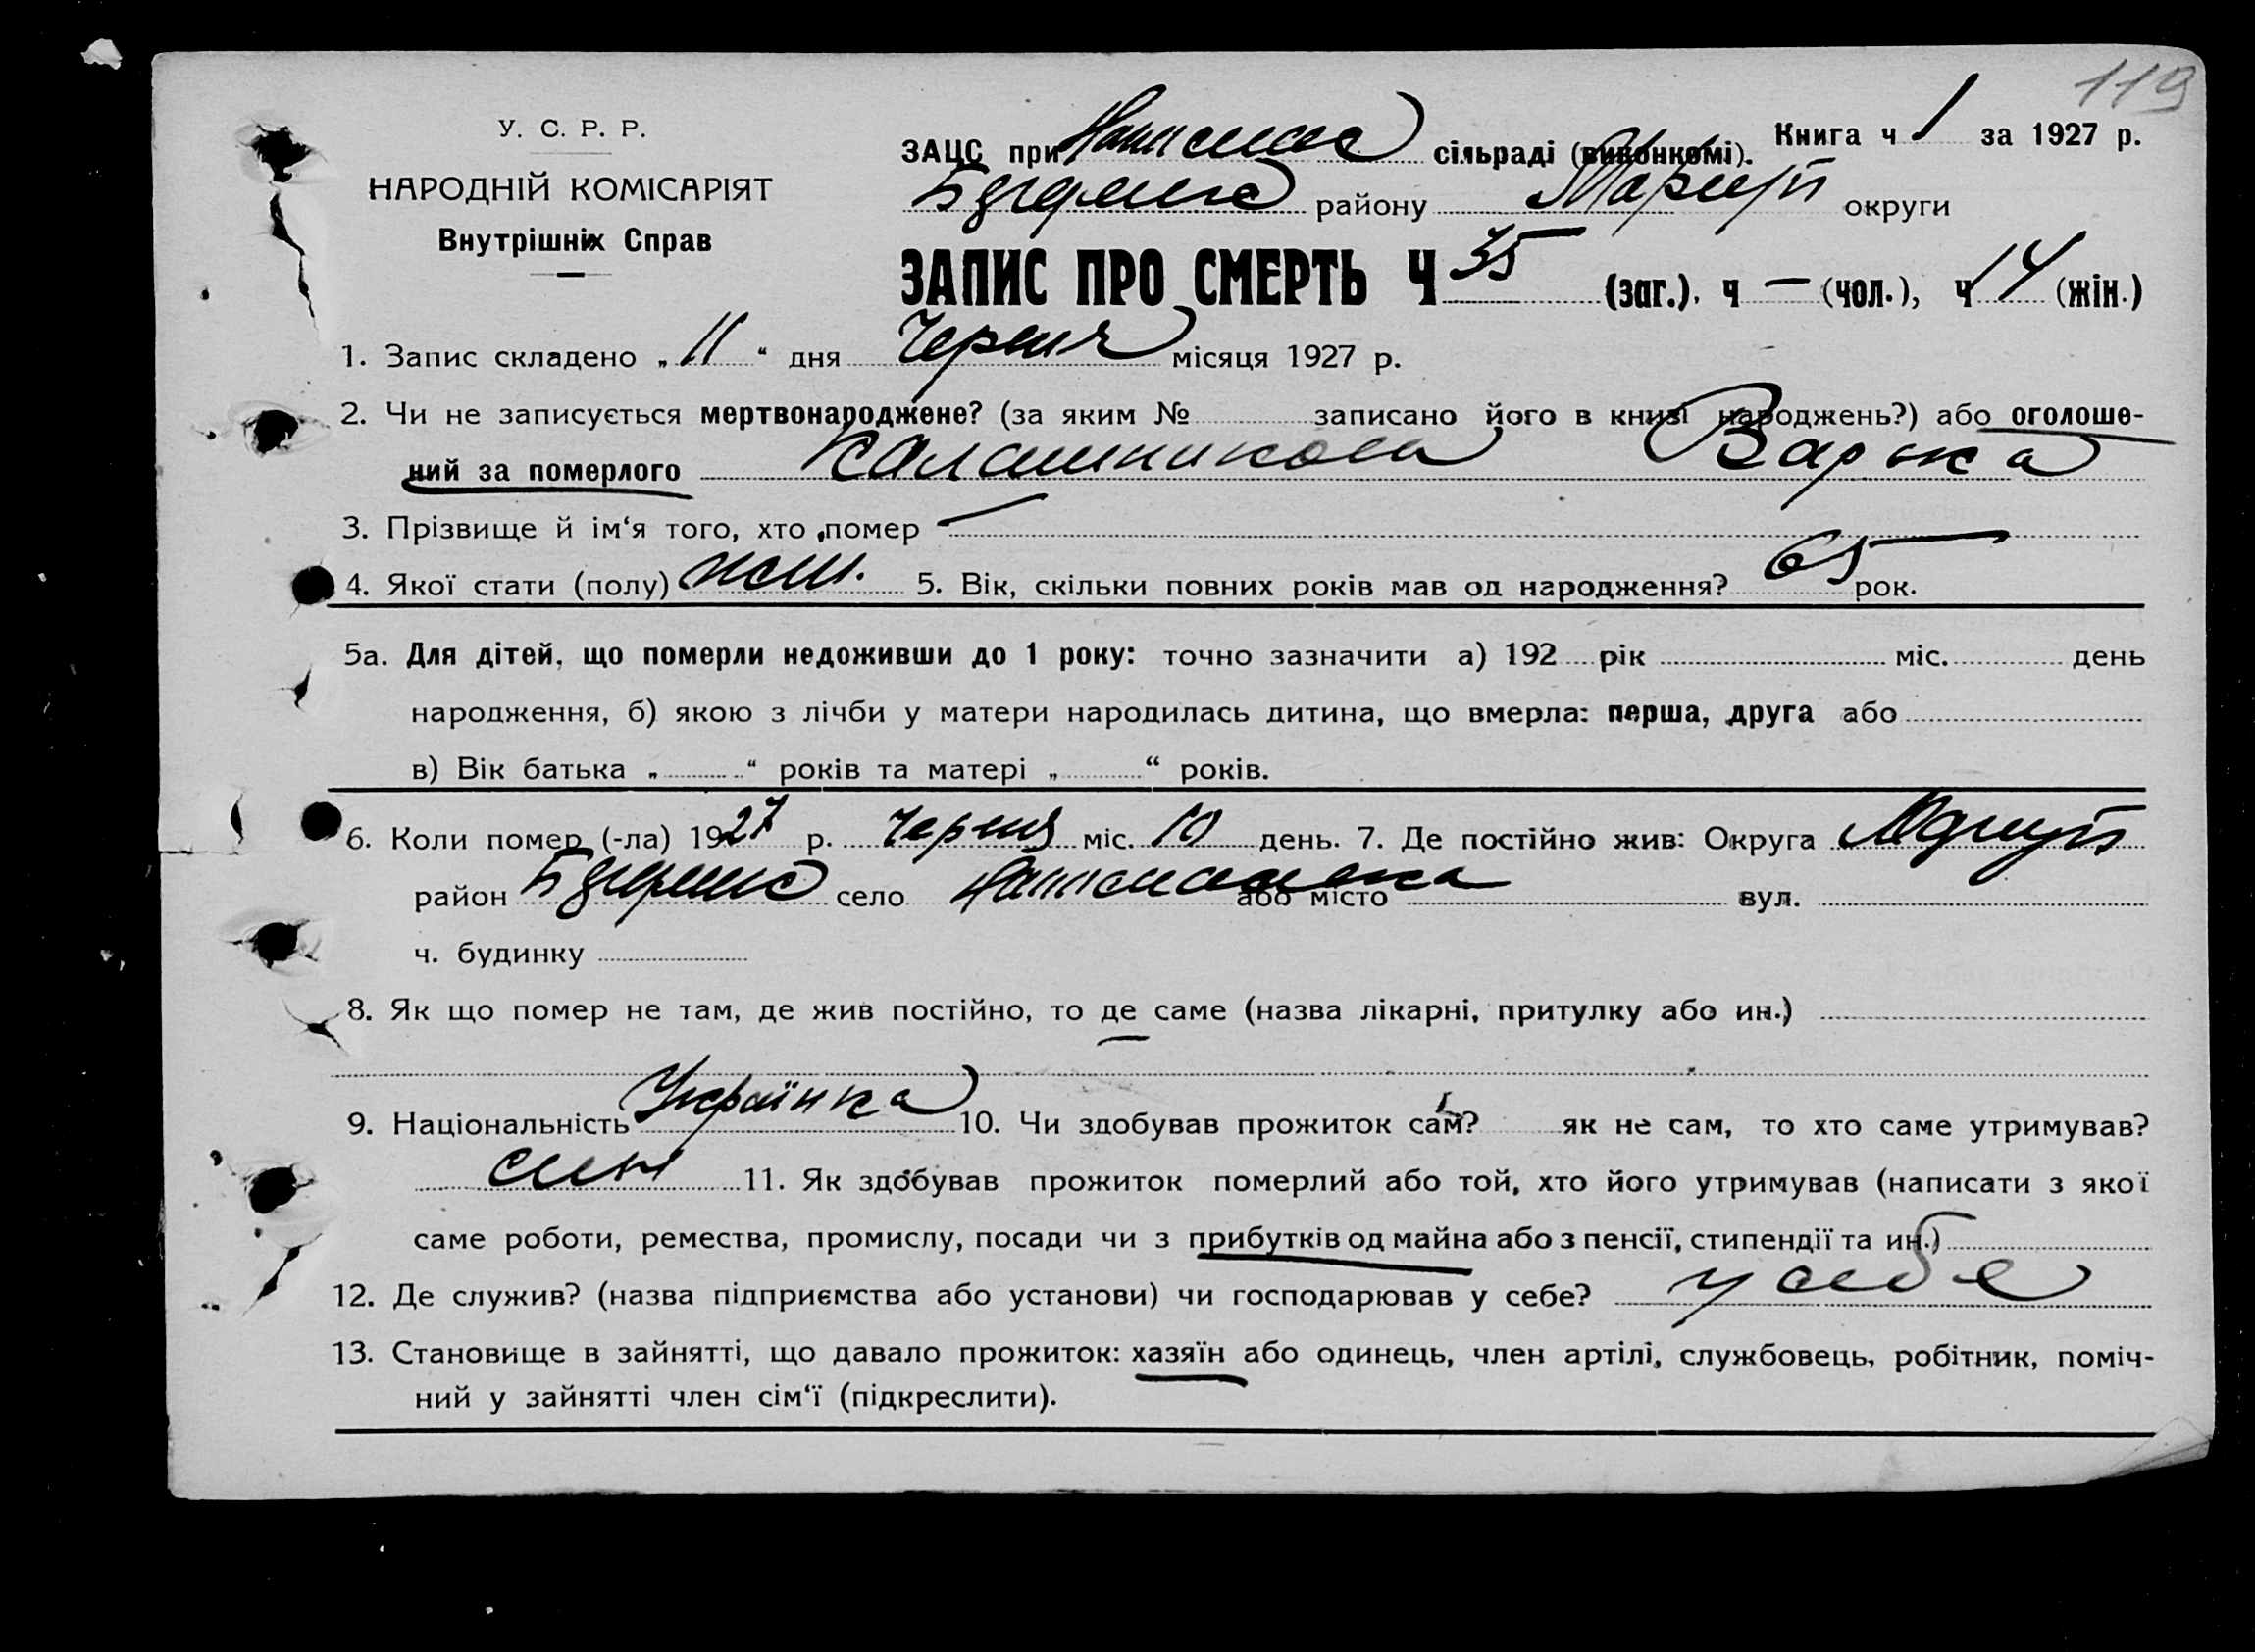 119
У. С. Р. Р.
НАРОДНІЙ КОМІСАРІЯТ
Внутрішніх Справ
ЗАЦС при сільраді (виконкомі). Книга ч 1 за 1927 р.
району Маріуп округи
ЗАПИС ПРО СМЕРТЬ Ч 35 (заг.). ч — (чол.), ч 14 (жін.)
1. Запис складено „ 11 “ дня Червня місяця 1927 р.
2. Чи не записується мертвонароджене? (за яким № записано його в книзі народжень?) або оголоше-
ний за померлого Калашникова Варка
3. Прізвище й ім‘я того, хто помер —
4. Якої стати (полу) жін. 5. Вік, скільки повних років мав од народження? 65 рок.
5а. Для дітей, що померли недоживши до 1 року: точно зазначити а) 192 рік міс. день
народження, б) якою з лічби у матери народилась дитина, що вмерла: перша, друга або
в) Вік батька „ “ років та матері „ “ років.
6. Коли помер (-ла) 1927 р. Червня міс. 10 день. 7. Де постійно жив: Округа
район село або місто вул.
ч. будинку
8. Як що помер не там, де жив постійно, то де саме (назва лікарні, притулку або ин.)
9. Національність Українка 10. Чи здобував прожиток сам? як не сам, то хто саме утримував?
син 11. Як здобував прожиток померлий або той, хто його утримував (написати з якої
саме роботи, ремества, промислу, посади чи з прибутків од майна або з пенсії, стипендії та ин.)
12. Де служив? (назва підприємства або установи) чи господарював у себе? у себе
13. Становище в зайнятті, що давало прожиток: хазяїн або одинець, член артілі, службовець, робітник, поміч-
ний у зайнятті член сім‘ї (підкреслити).